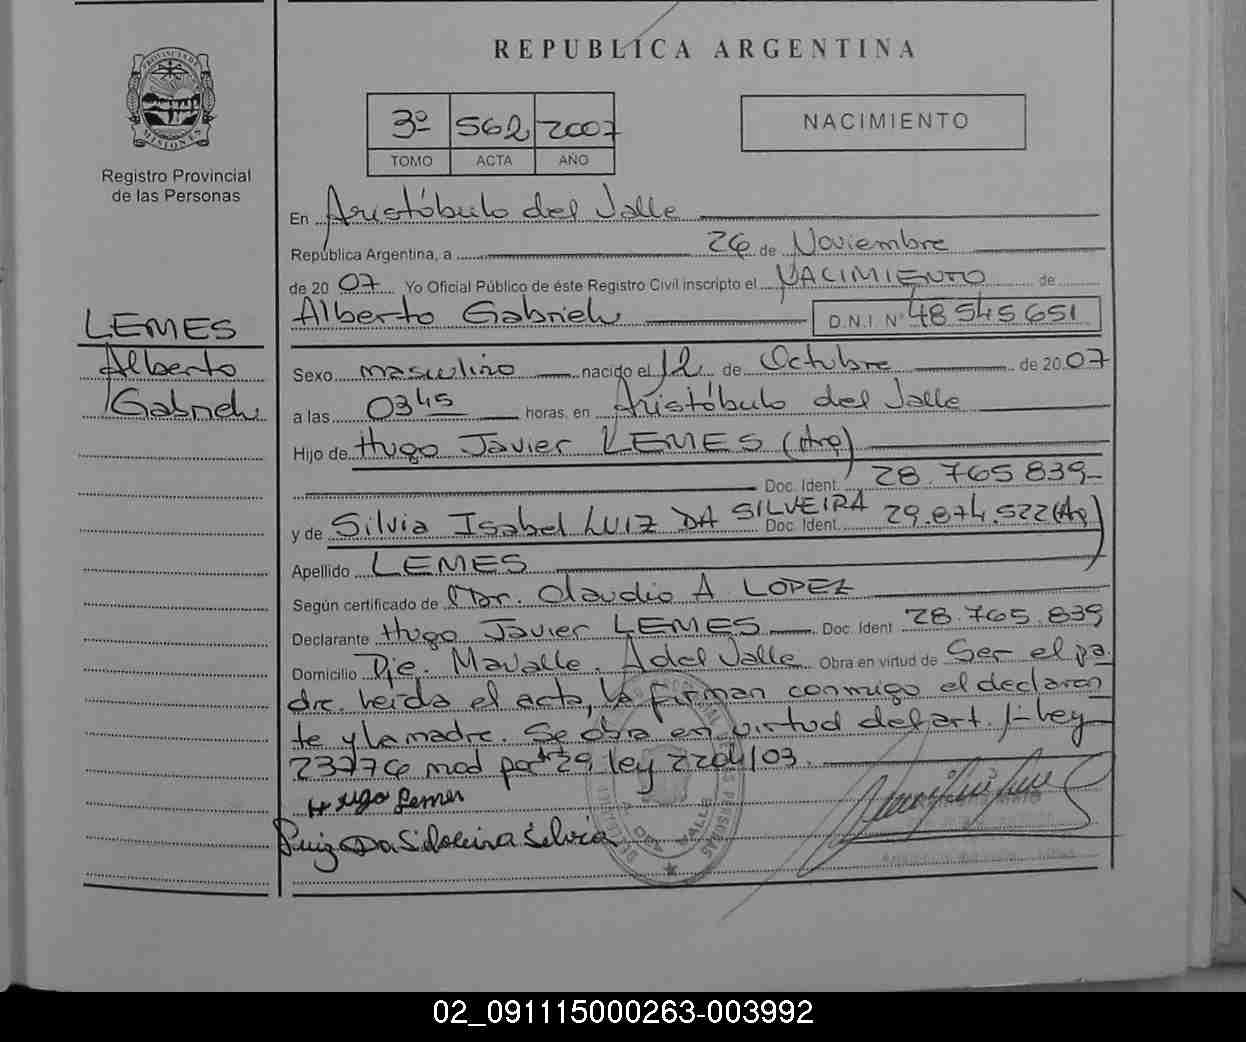 REPUBLICA ARGENTINA
PROVINCIA DE
MISIONES
Registro Provincial
de las Personas
3º 562 2007
TOMO ACTA AÑO
NACIMIENTO
En Aristóbulo del Valle
República Argentina, a 26 de Noviembre
de 20 07 Yo Oficial Público de éste Registro Civil inscripto el NACIMIENTO de
LEMES
Alberto
Gabriel
Alberto Gabriel D.N.I. Nº 48 545 651
Sexo masculino nacido el 12 de Octubre de 20 07
a las 03 45 horas, en Aristóbulo del Valle
Hijo de Hugo Javier LEMES (Arg)
Doc. Ident. 28.765 839
y de Silvia Isabel LUIZ DA SILVEIRA Doc. Ident. 29.874.522 (Arg)
Apellido LEMES
Según certificado de Claudio A LOPEZ
Declarante Hugo Javier LEMES Doc. Ident 28.765.839
Domicilio A del Valle Obra en virtud de Ser el pa
dre. Leida el acta, la firman conmigo el declaran
te y la madre. Se obra en virtud del art. 1- Ley
23776 mod por 29 ley 2204/03.
Hugo Lemes
Luiz Da Silveira Silvia
02_091115000263-003992